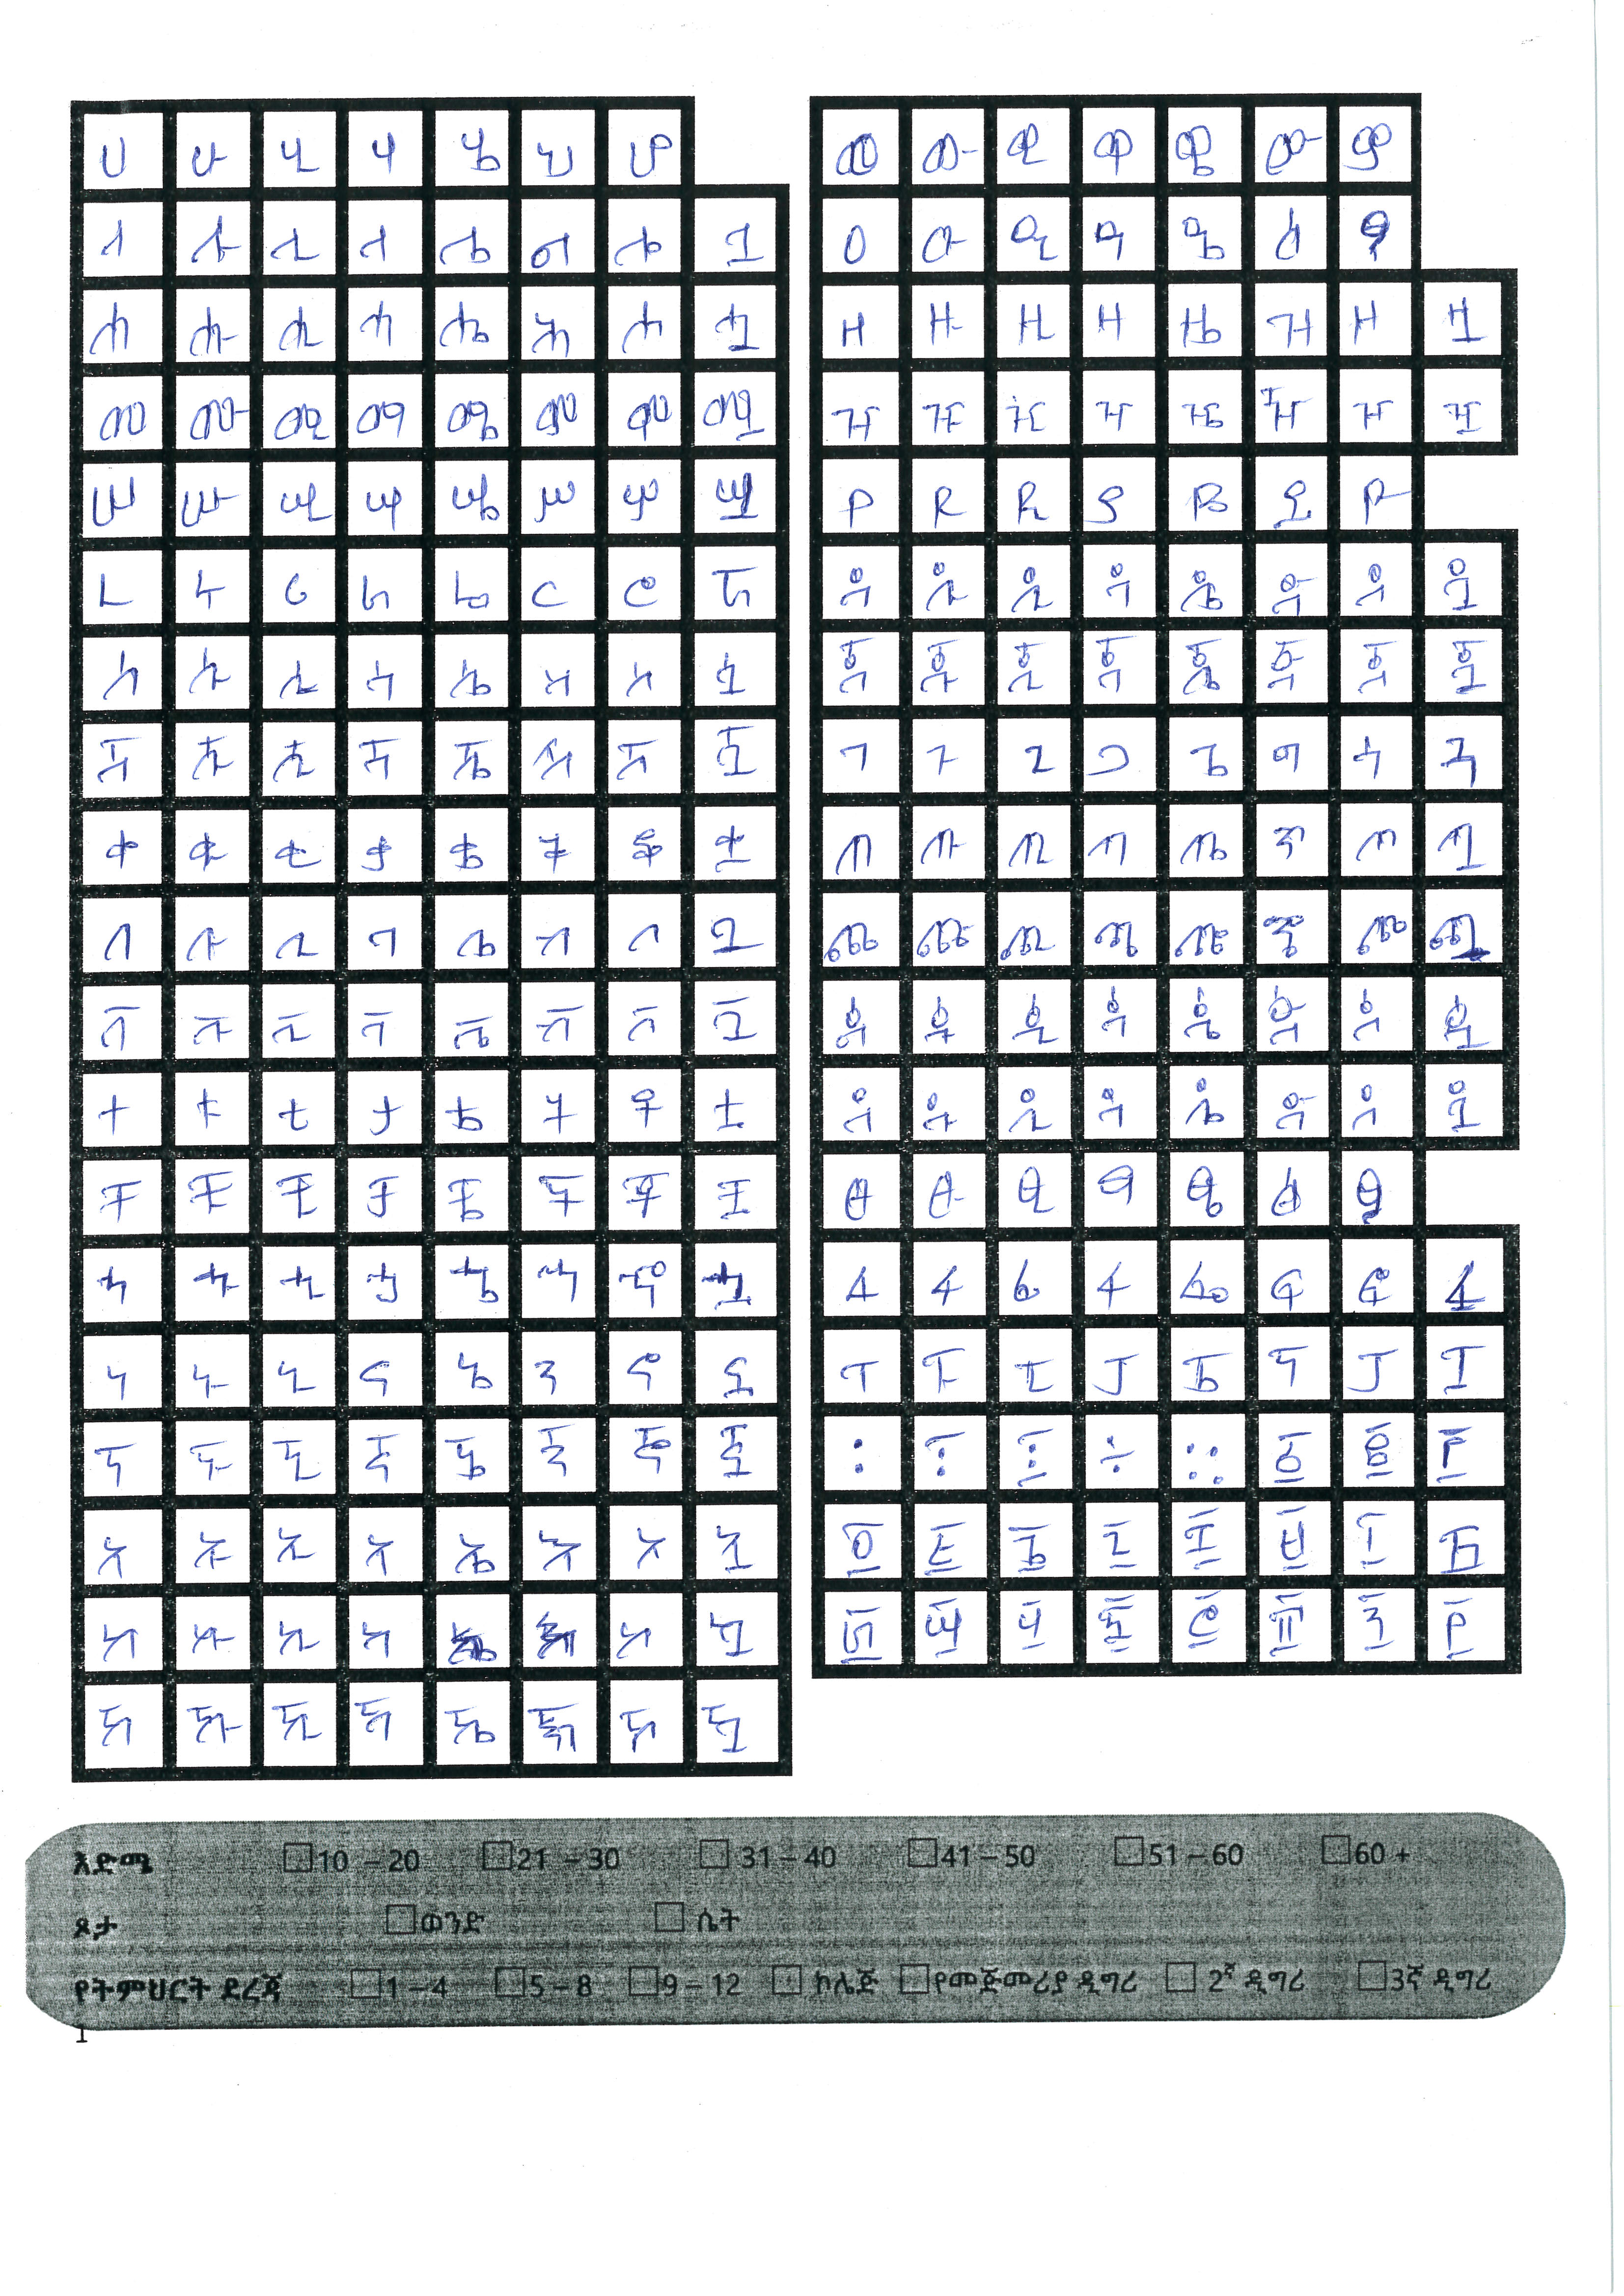 ሀ ሁ ሂ ሃ ሄ ህ ሆ
ለ ሉ ሊ ላ ሌ ል ሎ ሏ
ሐ ሑ ሒ ሓ ሔ ሕ ሖ ሗ
መ ሙ ሚ ማ ሜ ም ሞ ሟ
ሠ ሡ ሢ ሣ ሤ ሥ ሦ ሧ
ረ ሩ ሪ ራ ሬ ር ሮ ሯ
ሰ ሱ ሲ ሳ ሴ ስ ሶ ሷ
ሸ ሹ ሺ ሻ ሼ ሽ ሾ ሿ
ቀ ቁ ቂ ቃ ቄ ቅ ቆ ቋ
በ ቡ ቢ ባ ቤ ብ ቦ ቧ
ቨ ቩ ቪ ቫ ቬ ቭ ቮ ቯ
ተ ቱ ቲ ታ ቴ ት ቶ ቷ
ቸ ቹ ቺ ቻ ቼ ች ቾ ቿ
ኀ ኁ ኂ ኃ ኄ ኅ ኆ ኋ
ነ ኑ ኒ ና ኔ ን ኖ ኗ
ኘ ኙ ኚ ኛ ኜ ኝ ኞ ኟ
አ ኡ ኢ ኣ ኤ እ ኦ ኧ
ከ ኩ ኪ ካ ኬ ክ ኮ ኳ
ኸ ኹ ኺ ኻ ኼ ኽ ኾ ዃ
ወ ዉ ዊ ዋ ዌ ው ዎ
ዐ ዑ ዒ ዓ ዔ ዕ ዖ
ዘ ዙ ዚ ዛ ዜ ዝ ዞ ዟ
ዠ ዡ ዢ ዣ ዤ ዥ ዦ ዧ
የ ዩ ዪ ያ ዬ ይ ዮ
ደ ዱ ዲ ዳ ዴ ድ ዶ ዷ
ጀ ጁ ጂ ጃ ጄ ጅ ጆ ጇ
ገ ጉ ጊ ጋ ጌ ግ ጎ ጓ
ጠ ጡ ጢ ጣ ጤ ጥ ጦ ጧ
ጨ ጩ ጪ ጫ ጬ ጭ ጮ ጯ
ጰ ጱ ጲ ጳ ጴ ጵ ጶ ጷ
ጸ ጹ ጺ ጻ ጼ ጽ ጾ ጿ
ፀ ፁ ፂ ፃ ፄ ፅ ፆ
ፈ ፉ ፊ ፋ ፌ ፍ ፎ ፏ
ፐ ፑ ፒ ፓ ፔ ፕ ፖ ፗ
፡ ፣ ፤ ÷ ። ፩ ፪ ፫
፬ ፭ ፮ ፯ ፰ ፱ ፲ ፳
፴ ፵ ፶ ፷ ፸ ፹ ፺ ፻
እድሜ 10 – 20 21 – 30 31 – 40 41 – 50 51 – 60 60 +
ጾታ ወንድ ሴት
የትምህርት ደረጃ 1 – 4 5 – 8 9 – 12 ኮሌጅ የመጅመሪያ ዲግሪ 2ኛ ዲግሪ 3ኛ ዲግሪ
1